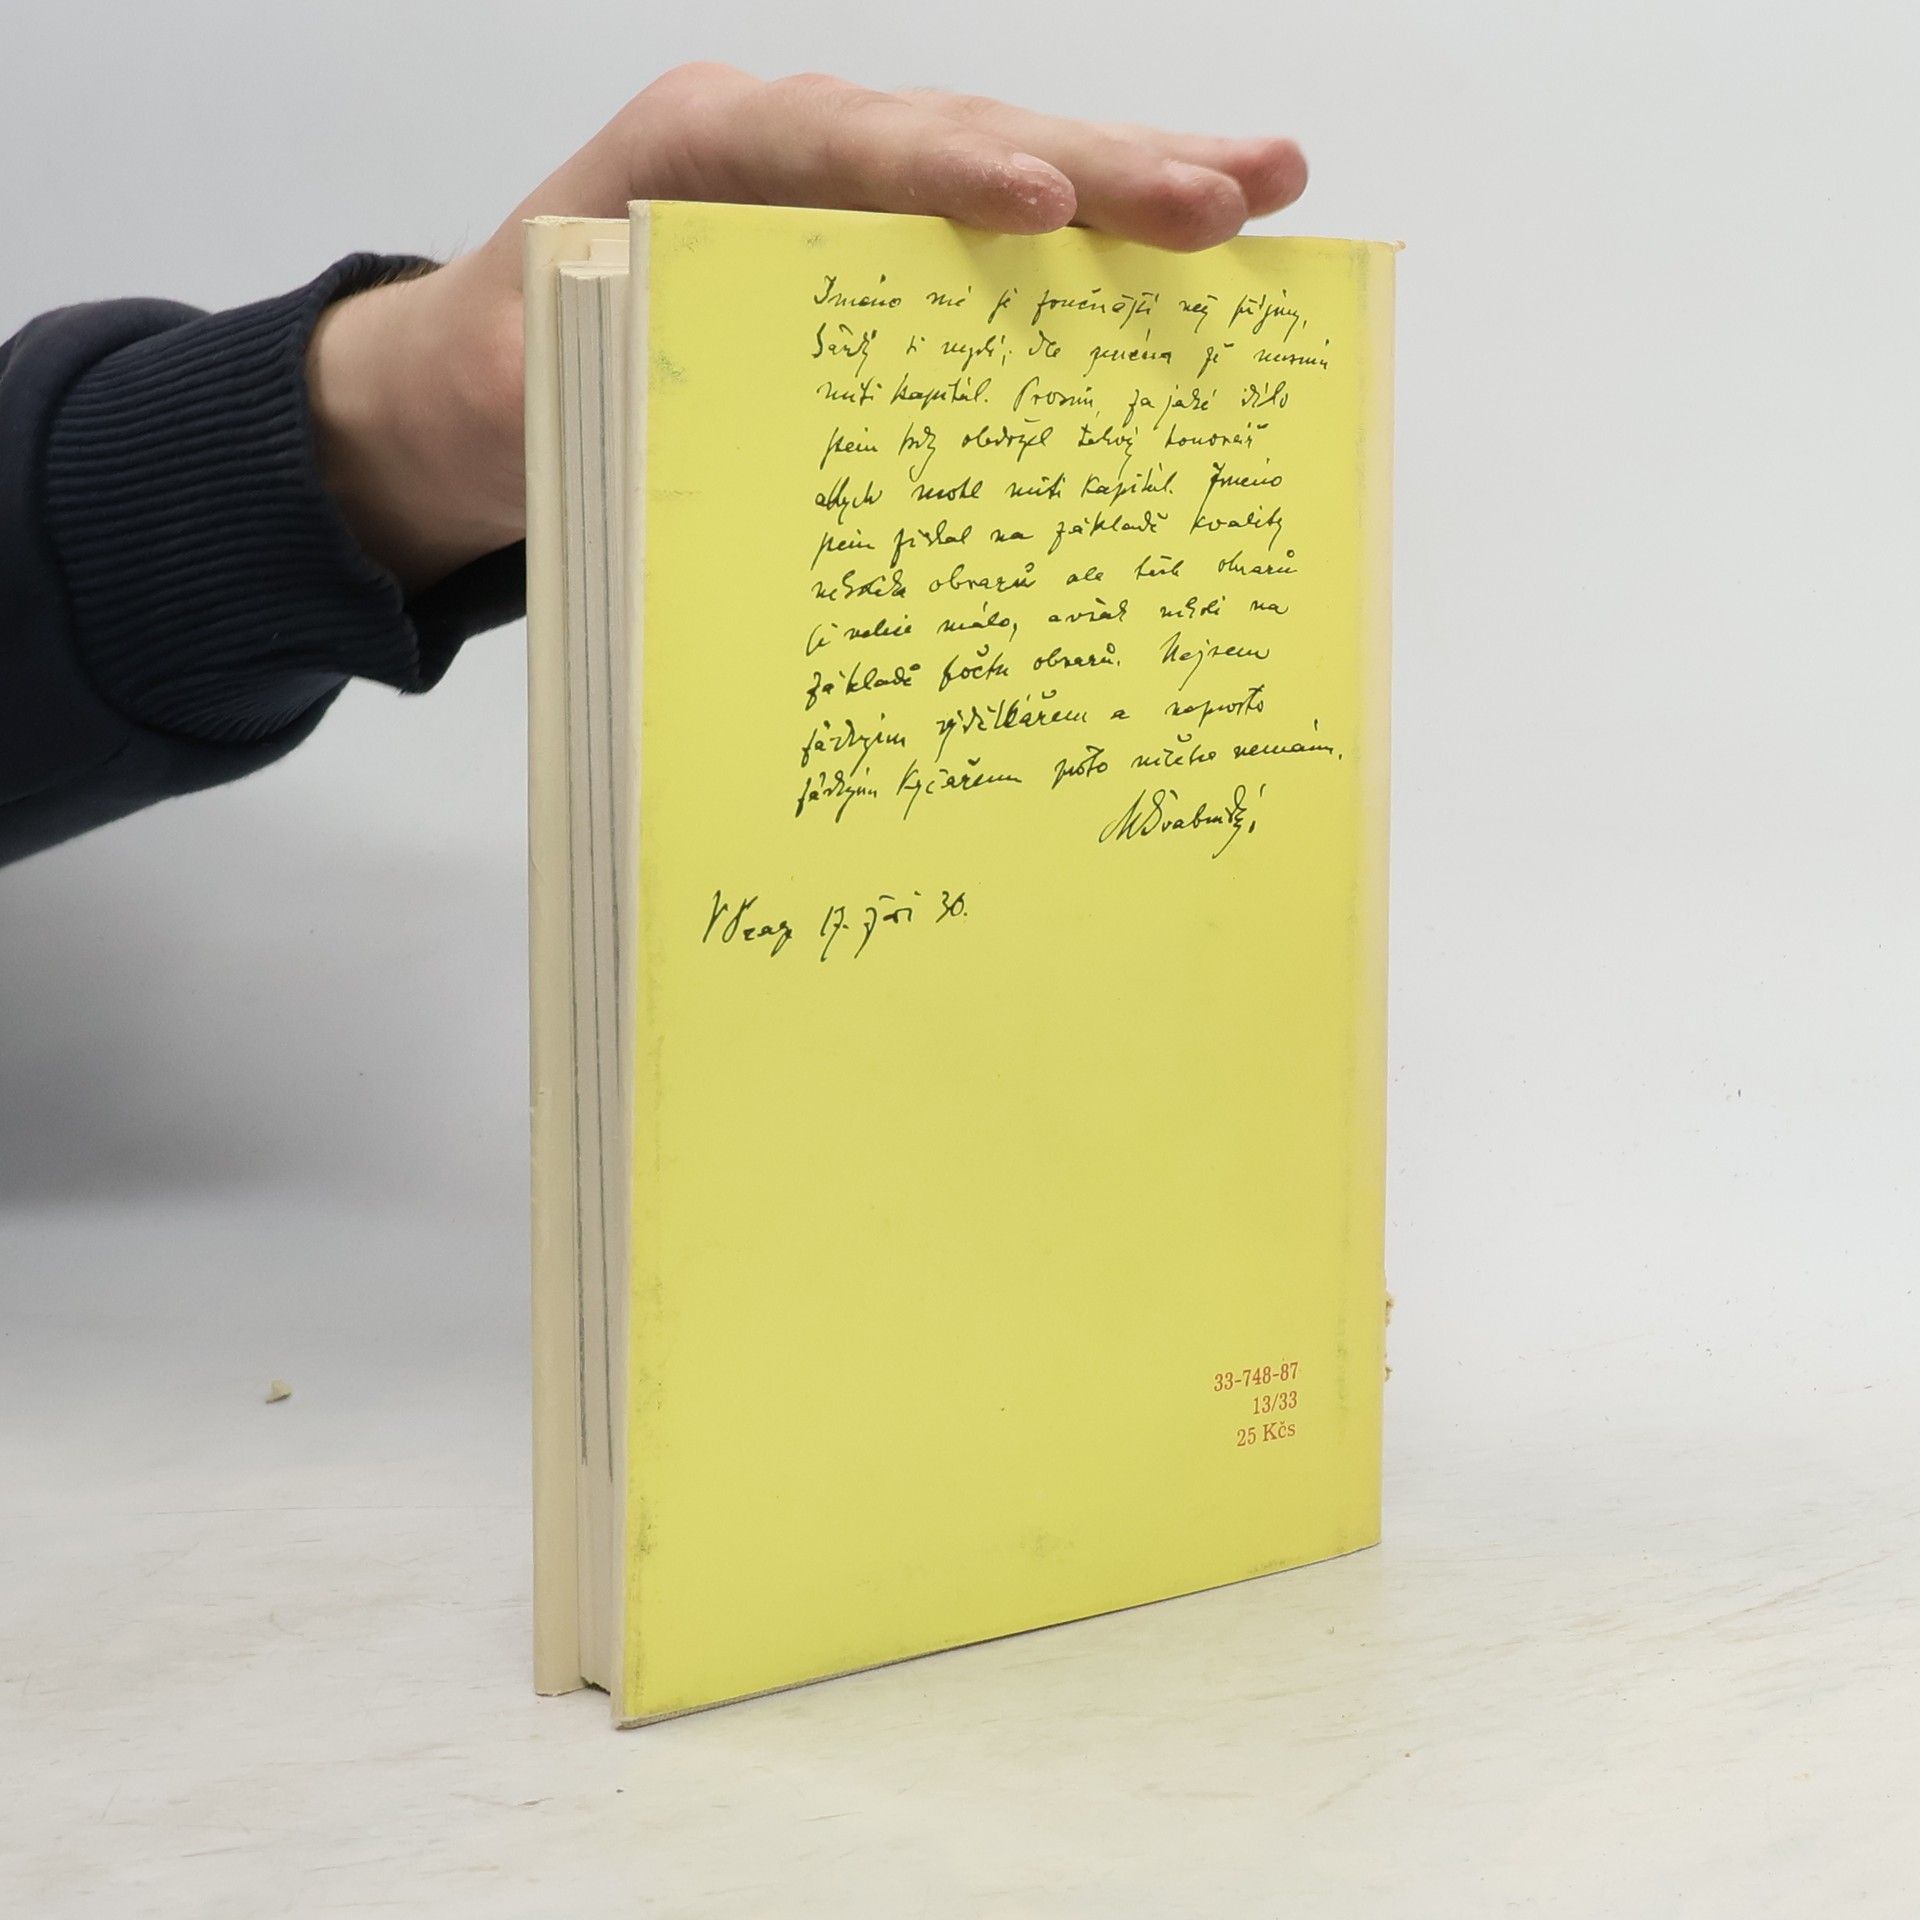 Jméno mé je zvučnější než příjmy,
každý si myslí, dle jména že musím
míti kapitál. Prosím, za jaké dílo
jsem kdy obdržel takový honorář
abych mohl míti kapitál. Jméno
jsem získal na základě kvality
několika obrazů ale těch obrazů
je velice málo, avšak nikoli na
základě počtu obrazů. Nejsem
žádným výdělkářem a naprosto
žádným kyčařem proto ničeho nemám.
MŠvabinský
V Praze 17. září 30.
33-748-87
13/33
25 Kčs